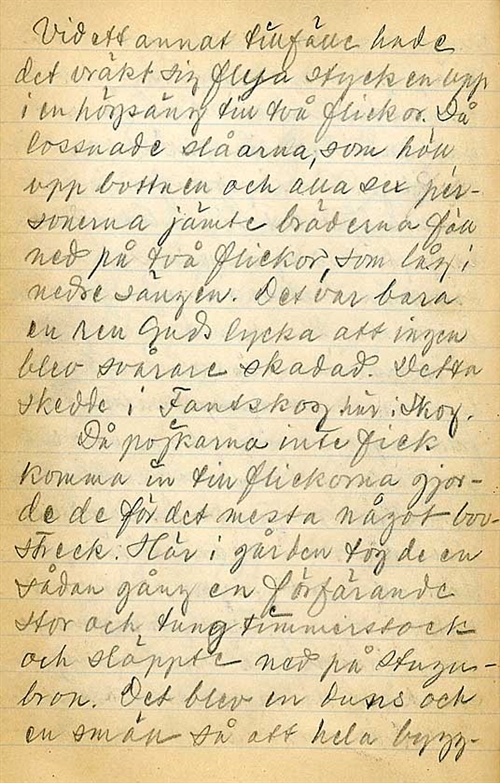 Vid ett annat tillfälle hade
det vräkt sig flera stycken upp
i en högsäng till två flickor. Då
lossnade slåarna, som höll
upp bottnen och alla sex per-
sonerna jämte bräderna föll
ned på två flickor, som låg i
nedre sängen. Det var bara
en ren Guds lycka att ingen
blev svårare skadad. Detta
skedde i Fantskog här i Skog.
Då pojkarna inte fick
komma in till flickorna gjor-
de de för det mesta något bov-
streck. Här i gården tog de en
sådan gång en förfärande
stor och tung timmerstock
och släppte ned på stugu-
bron. Det blev en duns och
en smäll så att hela bygg-